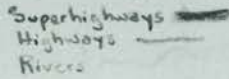 Superhighways
Highways
Rivers